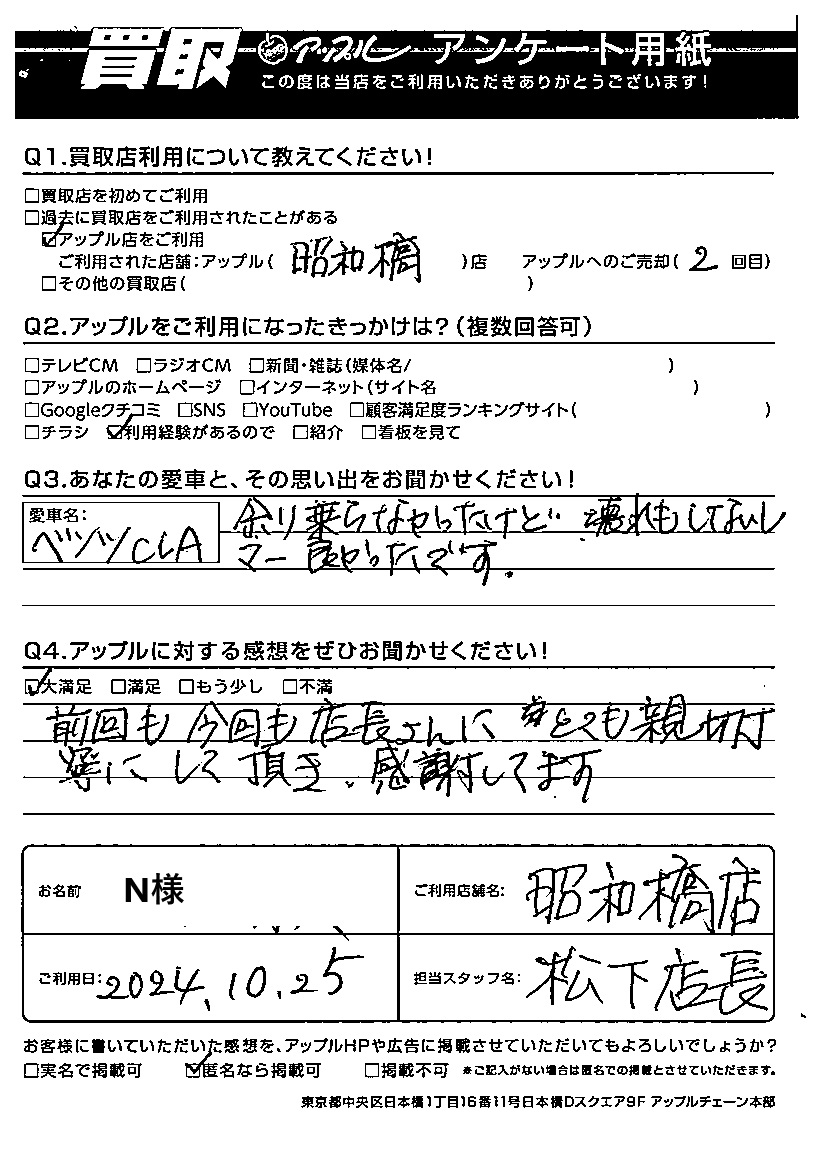 買取 アップル アンケート用紙
この度は当店をご利用いただきありがとうございます!
Q1.買取店利用について教えてください!
□買取店を初めてご利用
□過去に買取店をご利用されたことがある
☑アップル店をご利用
ご利用された店舗:アップル( 昭和橋 )店 アップルへのご売却( 2 回目)
□その他の買取店( )
Q2.アップルをご利用になったきっかけは?(複数回答可)
□テレビCM □ラジオCM □新聞・雑誌(媒体名/ )
□アップルのホームページ □インターネット(サイト名 )
□Googleクチコミ □SNS □YouTube □顧客満足度ランキングサイト( )
□チラシ ☑利用経験があるので □紹介 □看板を見て
Q3.あなたの愛車と、その思い出をお聞かせください!
愛車名:
ベンツCLA
余り乗らなかったけど 壊れもしないし
マー 良かったです.
Q4.アップルに対する感想をぜひお聞かせください!
☑大満足 □満足 □もう少し □不満
前回も今回も店長さんに とても親切丁
寧にして頂き、感謝してます
お名前 N様 ご利用店舗名: 昭和橋店
ご利用日:2024.10.25 担当スタッフ名: 松下店長
お客様に書いていただいた感想を、アップルHPや広告に掲載させていただいてもよろしいでしょうか?
□実名で掲載可 ☑匿名なら掲載可 □掲載不可 ※ご記入がない場合は匿名での掲載とさせていただきます。
東京都中央区日本橋1丁目16番11号日本橋Dスクエア9F アップルチェーン本部